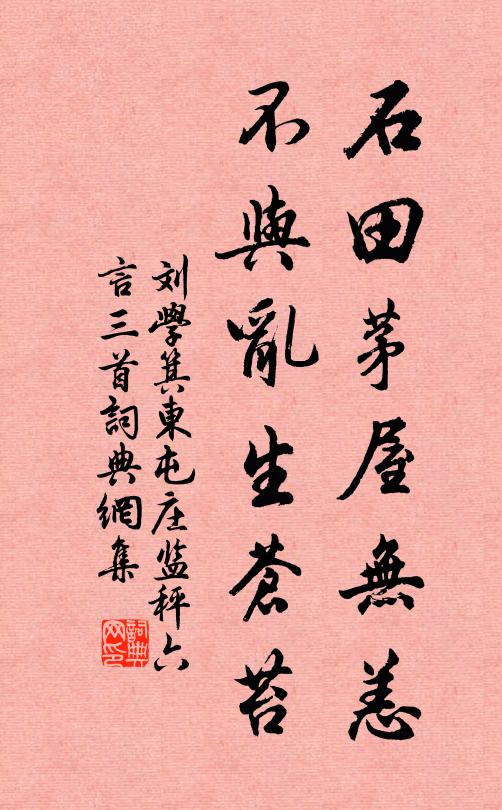 石田茅屋無恙
不與亂生蒼苔
刘學箕東屯庄监秤六
言三首詞典網集
詞典網印